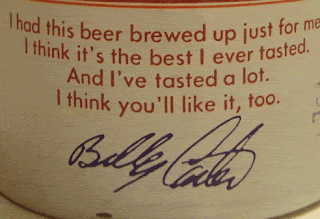 I had this beer brewed up just for me
I think it's the best I ever tasted.
And I've tasted a lot.
I think you'll like it, too.
Billy Carter